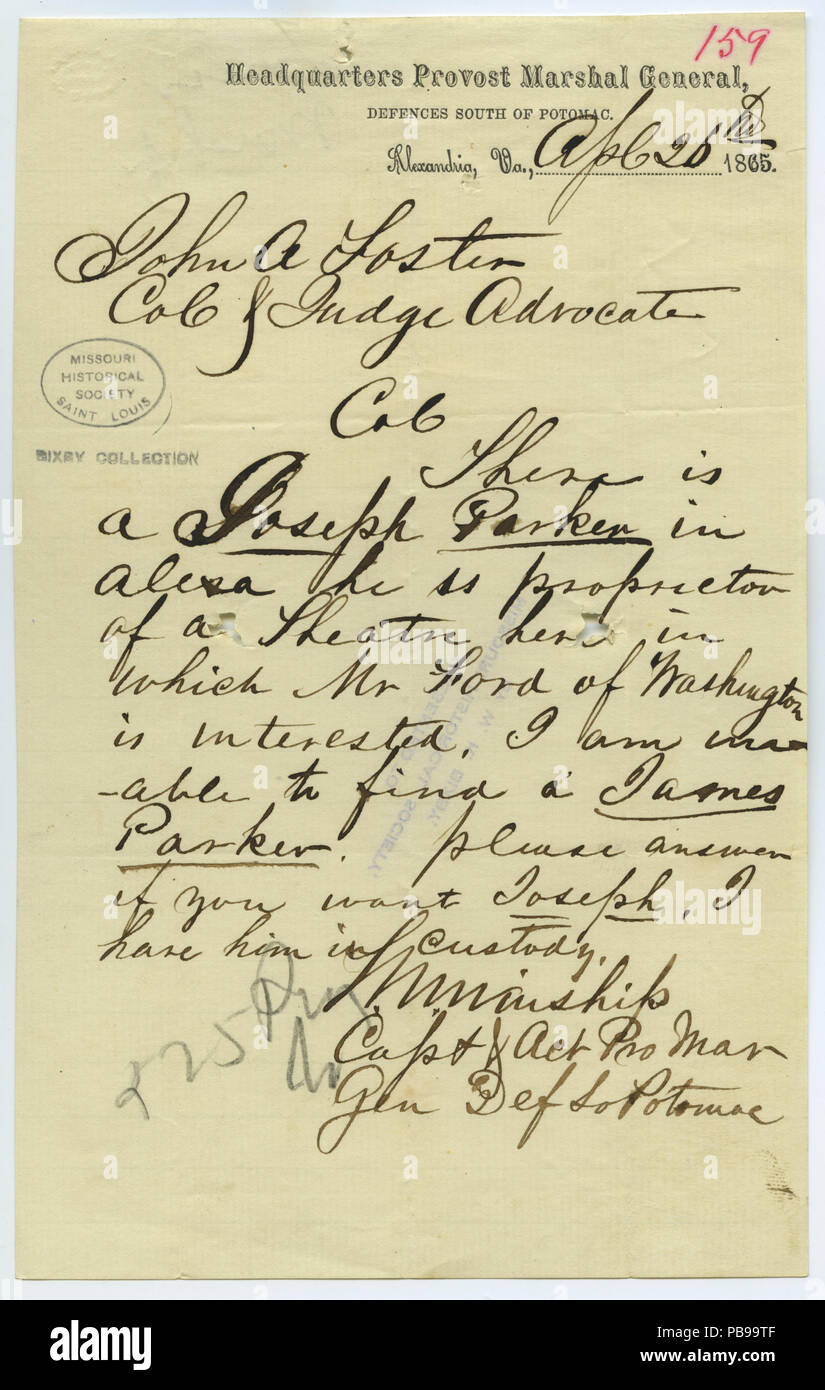 159
Headquarters Provost Marshal General,
DEFENCES SOUTH OF POTOMAC.
Alexandria, Va., Apl 1865.
John A Foster
Col & Judge Advocate
MISSOURI
HISTORICAL
SOCIETY
SAINT LOUIS
BIXBY COLLECTION
Col
There is
a Joseph Parker in
Alexa he is proprietor
of a Theatre here in
which Mr Ford of Washington
is interested. I am un-
-able to find a James
Parker. please answer
if you want Joseph, I
have him in custody.
W. W. Winship
Capt & Act Pro Mar
Gen Def So Potomac
alamy
Image ID: PB99TF
www.alamy.com